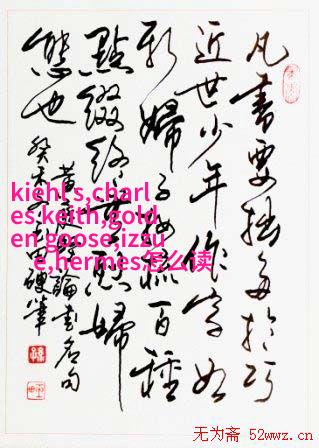 凡書要拙多於巧
近世少年作字如
新婦子妝梳百種
點綴終無烈婦
態也
黄庭堅論書名句
癸未
kiehl's,charl
es keith,gold
en goose,izzu
e,hermes怎么读
无为斋 52wwz.cn